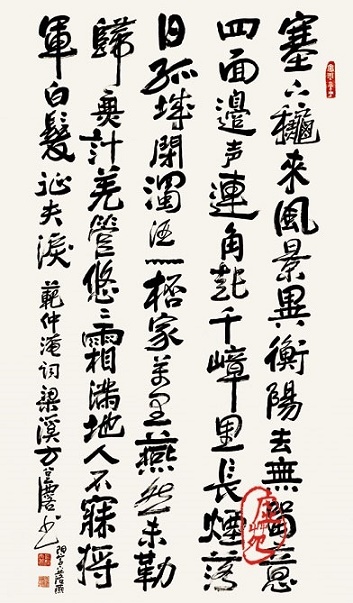 塞下龝來風景異衡陽去無留意
四面邊声連角起千嶂里長煙落
日孤城閉濁酒一桮家萬里燕然未勒
歸無計羌管悠〻霜滿地人不寐将
軍白髮征夫淚 範仲淹词 梁溪方